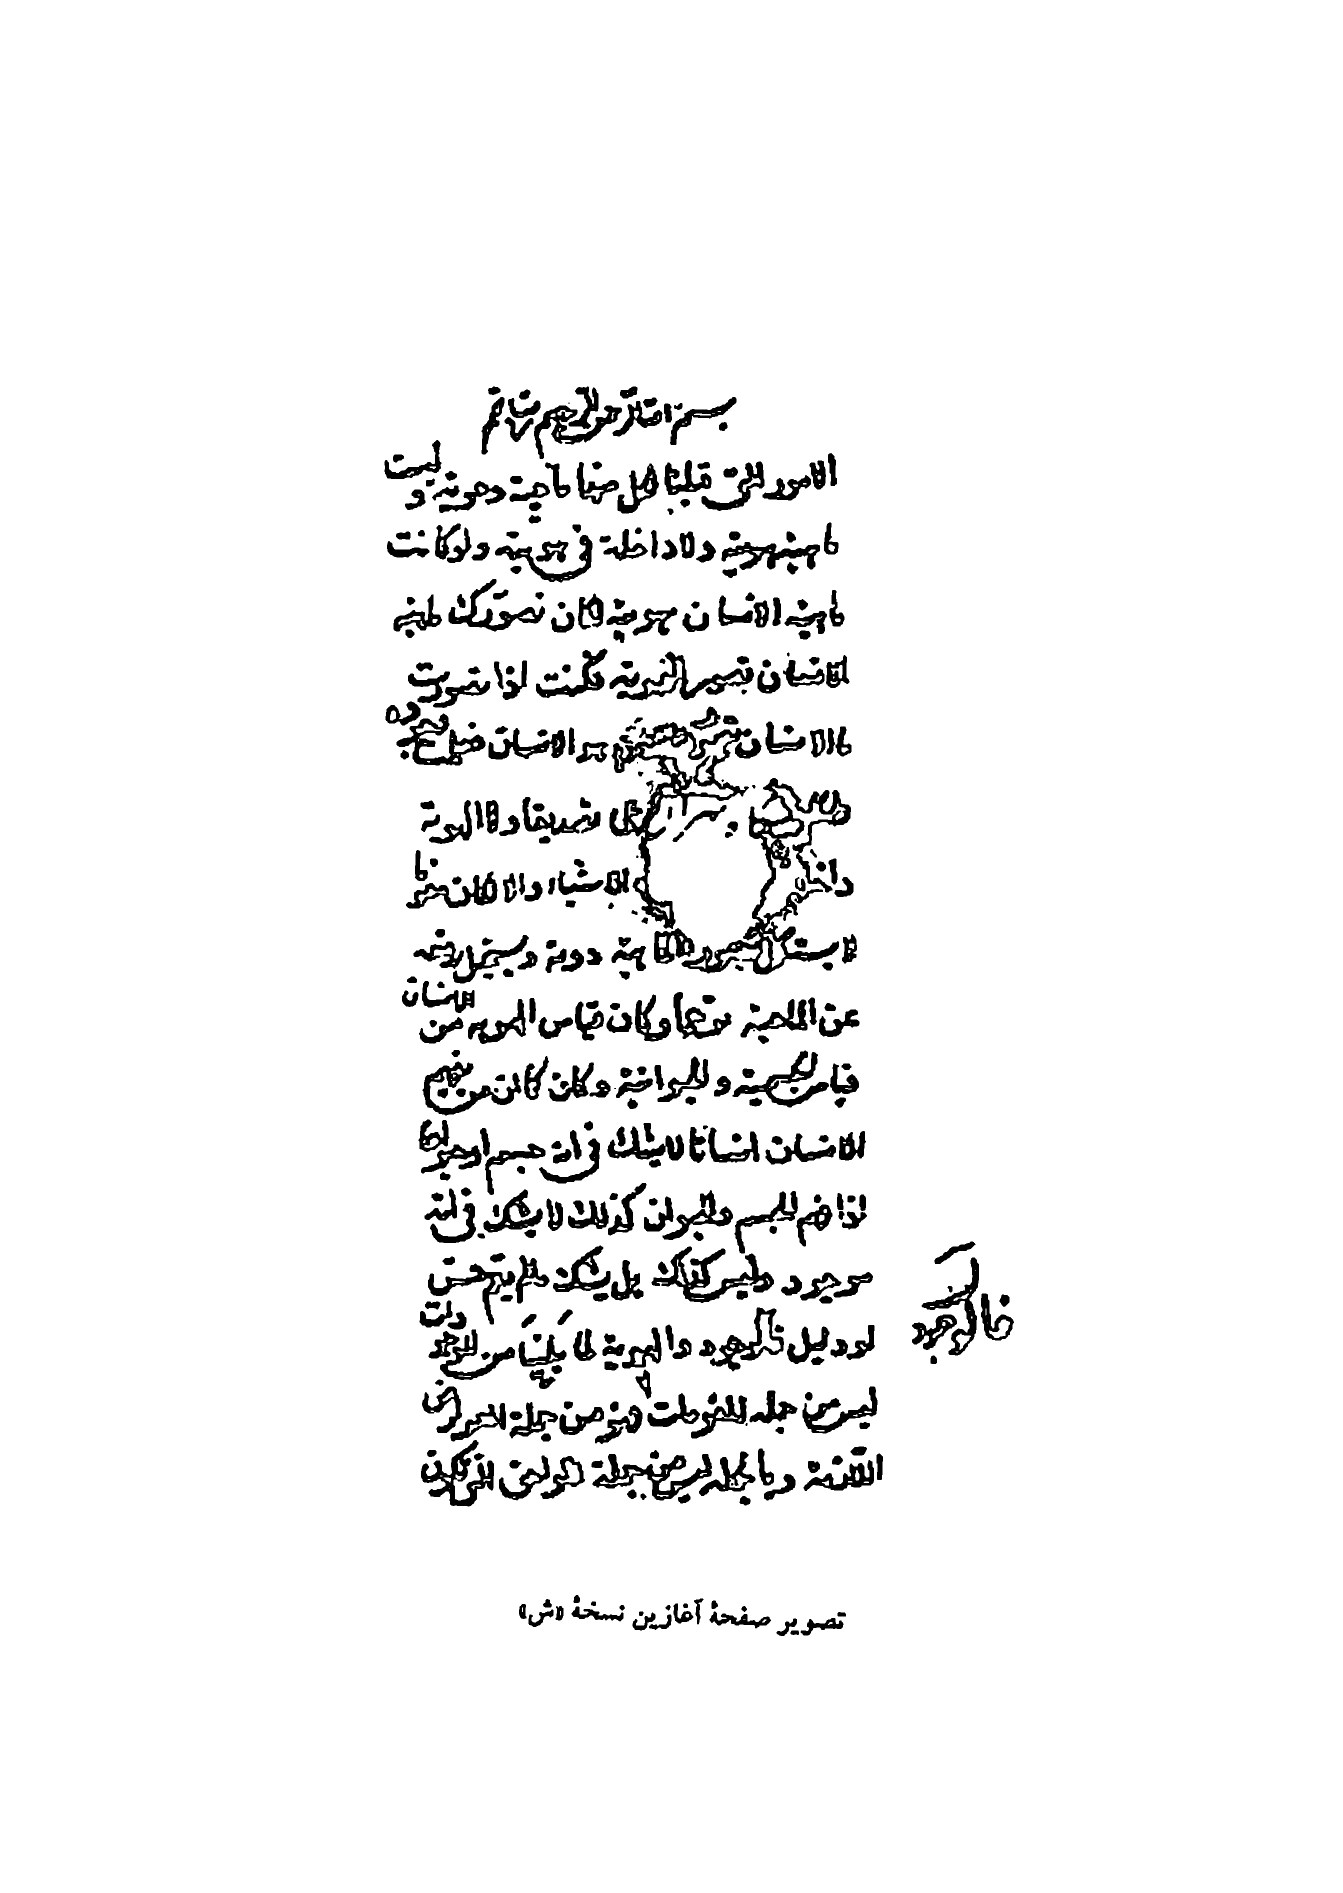 بسم الله الرحمن الرحيم
الامور التي قبلنا لكل منها ماهية وهوية وليست
ماهيته هويته ولا داخلة في هويته ولو كانت
ماهية الانسان هويته لكان تصورك ماهية
الانسان تصور الهويته فكنت اذا تصورت
ما الانسان تصورت هو الانسان فعلمت وجوده
تصديقا ولا الهوية
داخلة الاشياء والا لكان مقوما
لا يستكمل تصور الماهية دونه ويستحيل رفعه
عن الماهية توهما وكان قياس الهوية من الانسان
قياس الجسمية والحيوانية وكان كما ان من يفهم
الانسان انسانا لا يشك في انه جسم او حيوان
اذا فهم الجسم والحيوان كذلك لا يشك في انه
موجود وليس كذلك بل يشك ما لم يقم حس
او دليل فالوجود والهوية لما بينا من الموجودات
ليس من جملة المقومات فهو من جملة العوارض
اللازمة وبالجملة ليس من جملة اللواحق التي تكون
فالوجود
تصوير صفحۀ آغازين نسخۀ «ش»